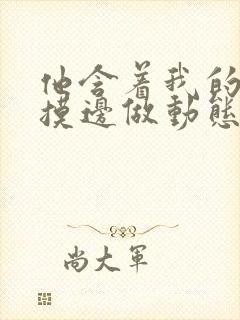 他含着我的
摸邊做動態
尚大軍